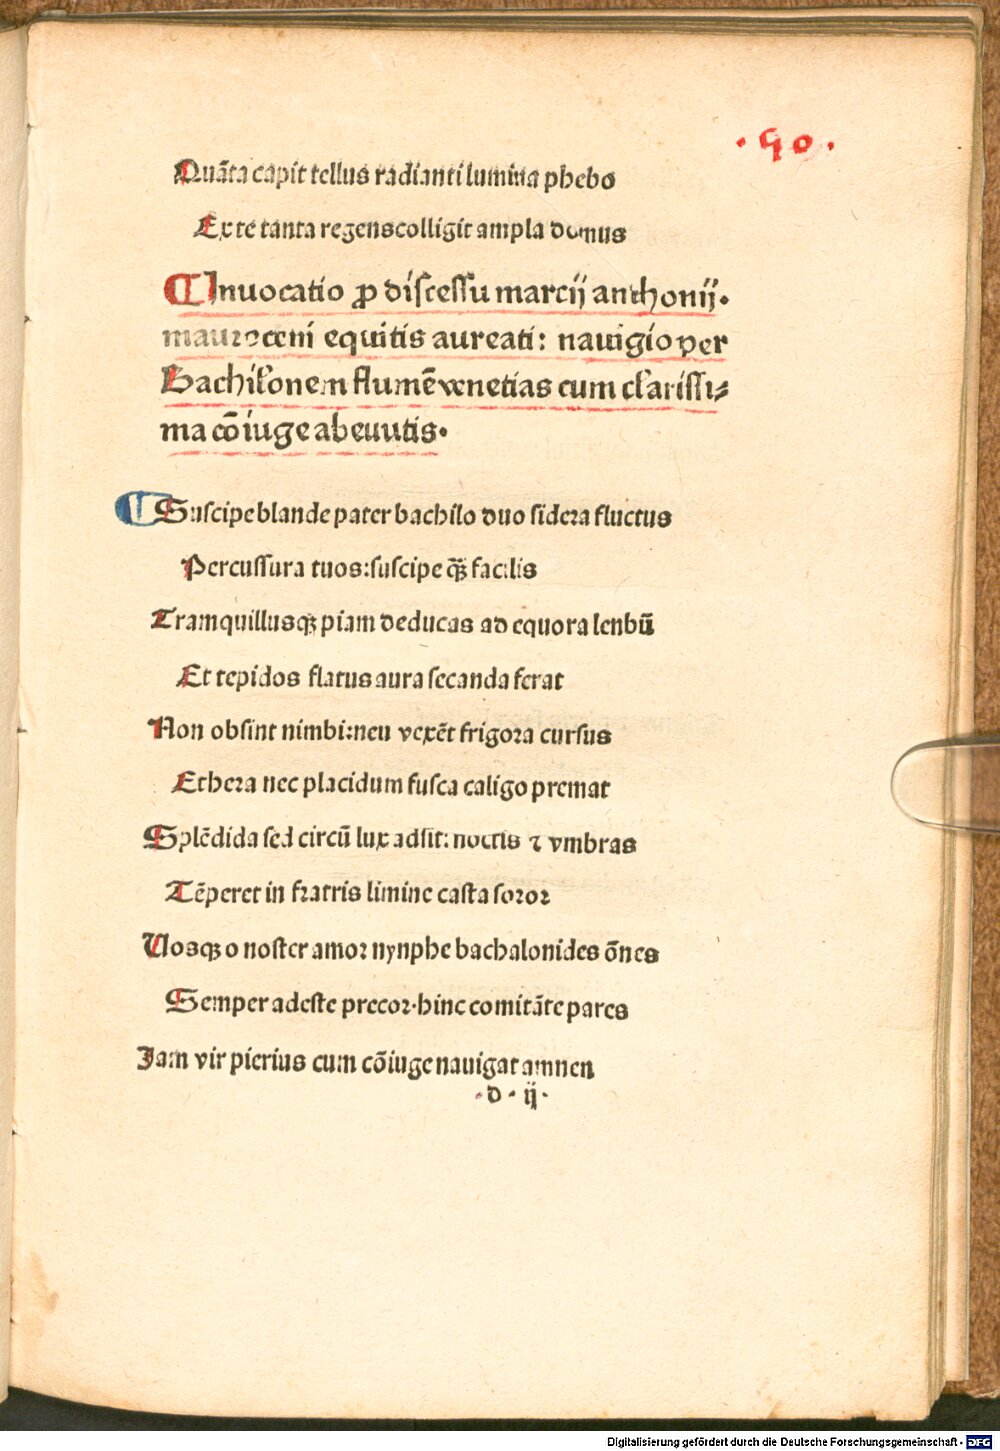 .90.
Quãta capit tellus radianti lumina phebo
Ex te tanta regens colligit ampla domus
¶ Inuocatio ꝓ discessu marcij anthonij.
mauroceni equitis aureati: nauigio per
Bachilonem flumẽ venetias cum clarissi⸗
ma cõiuge abeuutis.
¶ Suscipe blande pater bachilo duo sidera fluctus
Percussura tuos:suscipe qꝫ facilis
Tramquillusqꝫ piam deducas ad equora lenbũ
Et tepidos flatus aura secanda ferat
Non obsint nimbi:neu vexẽt frigora cursus
Ethera nec placidum fusca caligo premat
Splẽdida sed circũ lux adsit: noctis ⁊ vmbras
Tẽperet in fratris limine casta soror
Uosqꝫ o noster amor nynphe bachalonides õnes
Semper adeste precor.hinc comitãte pares
Jam vir pierius cum cõiuge nauigat amnen
.d.ij.
Digitalisierung gefördert durch die Deutsche Forschungsgemeinschaft - DFG